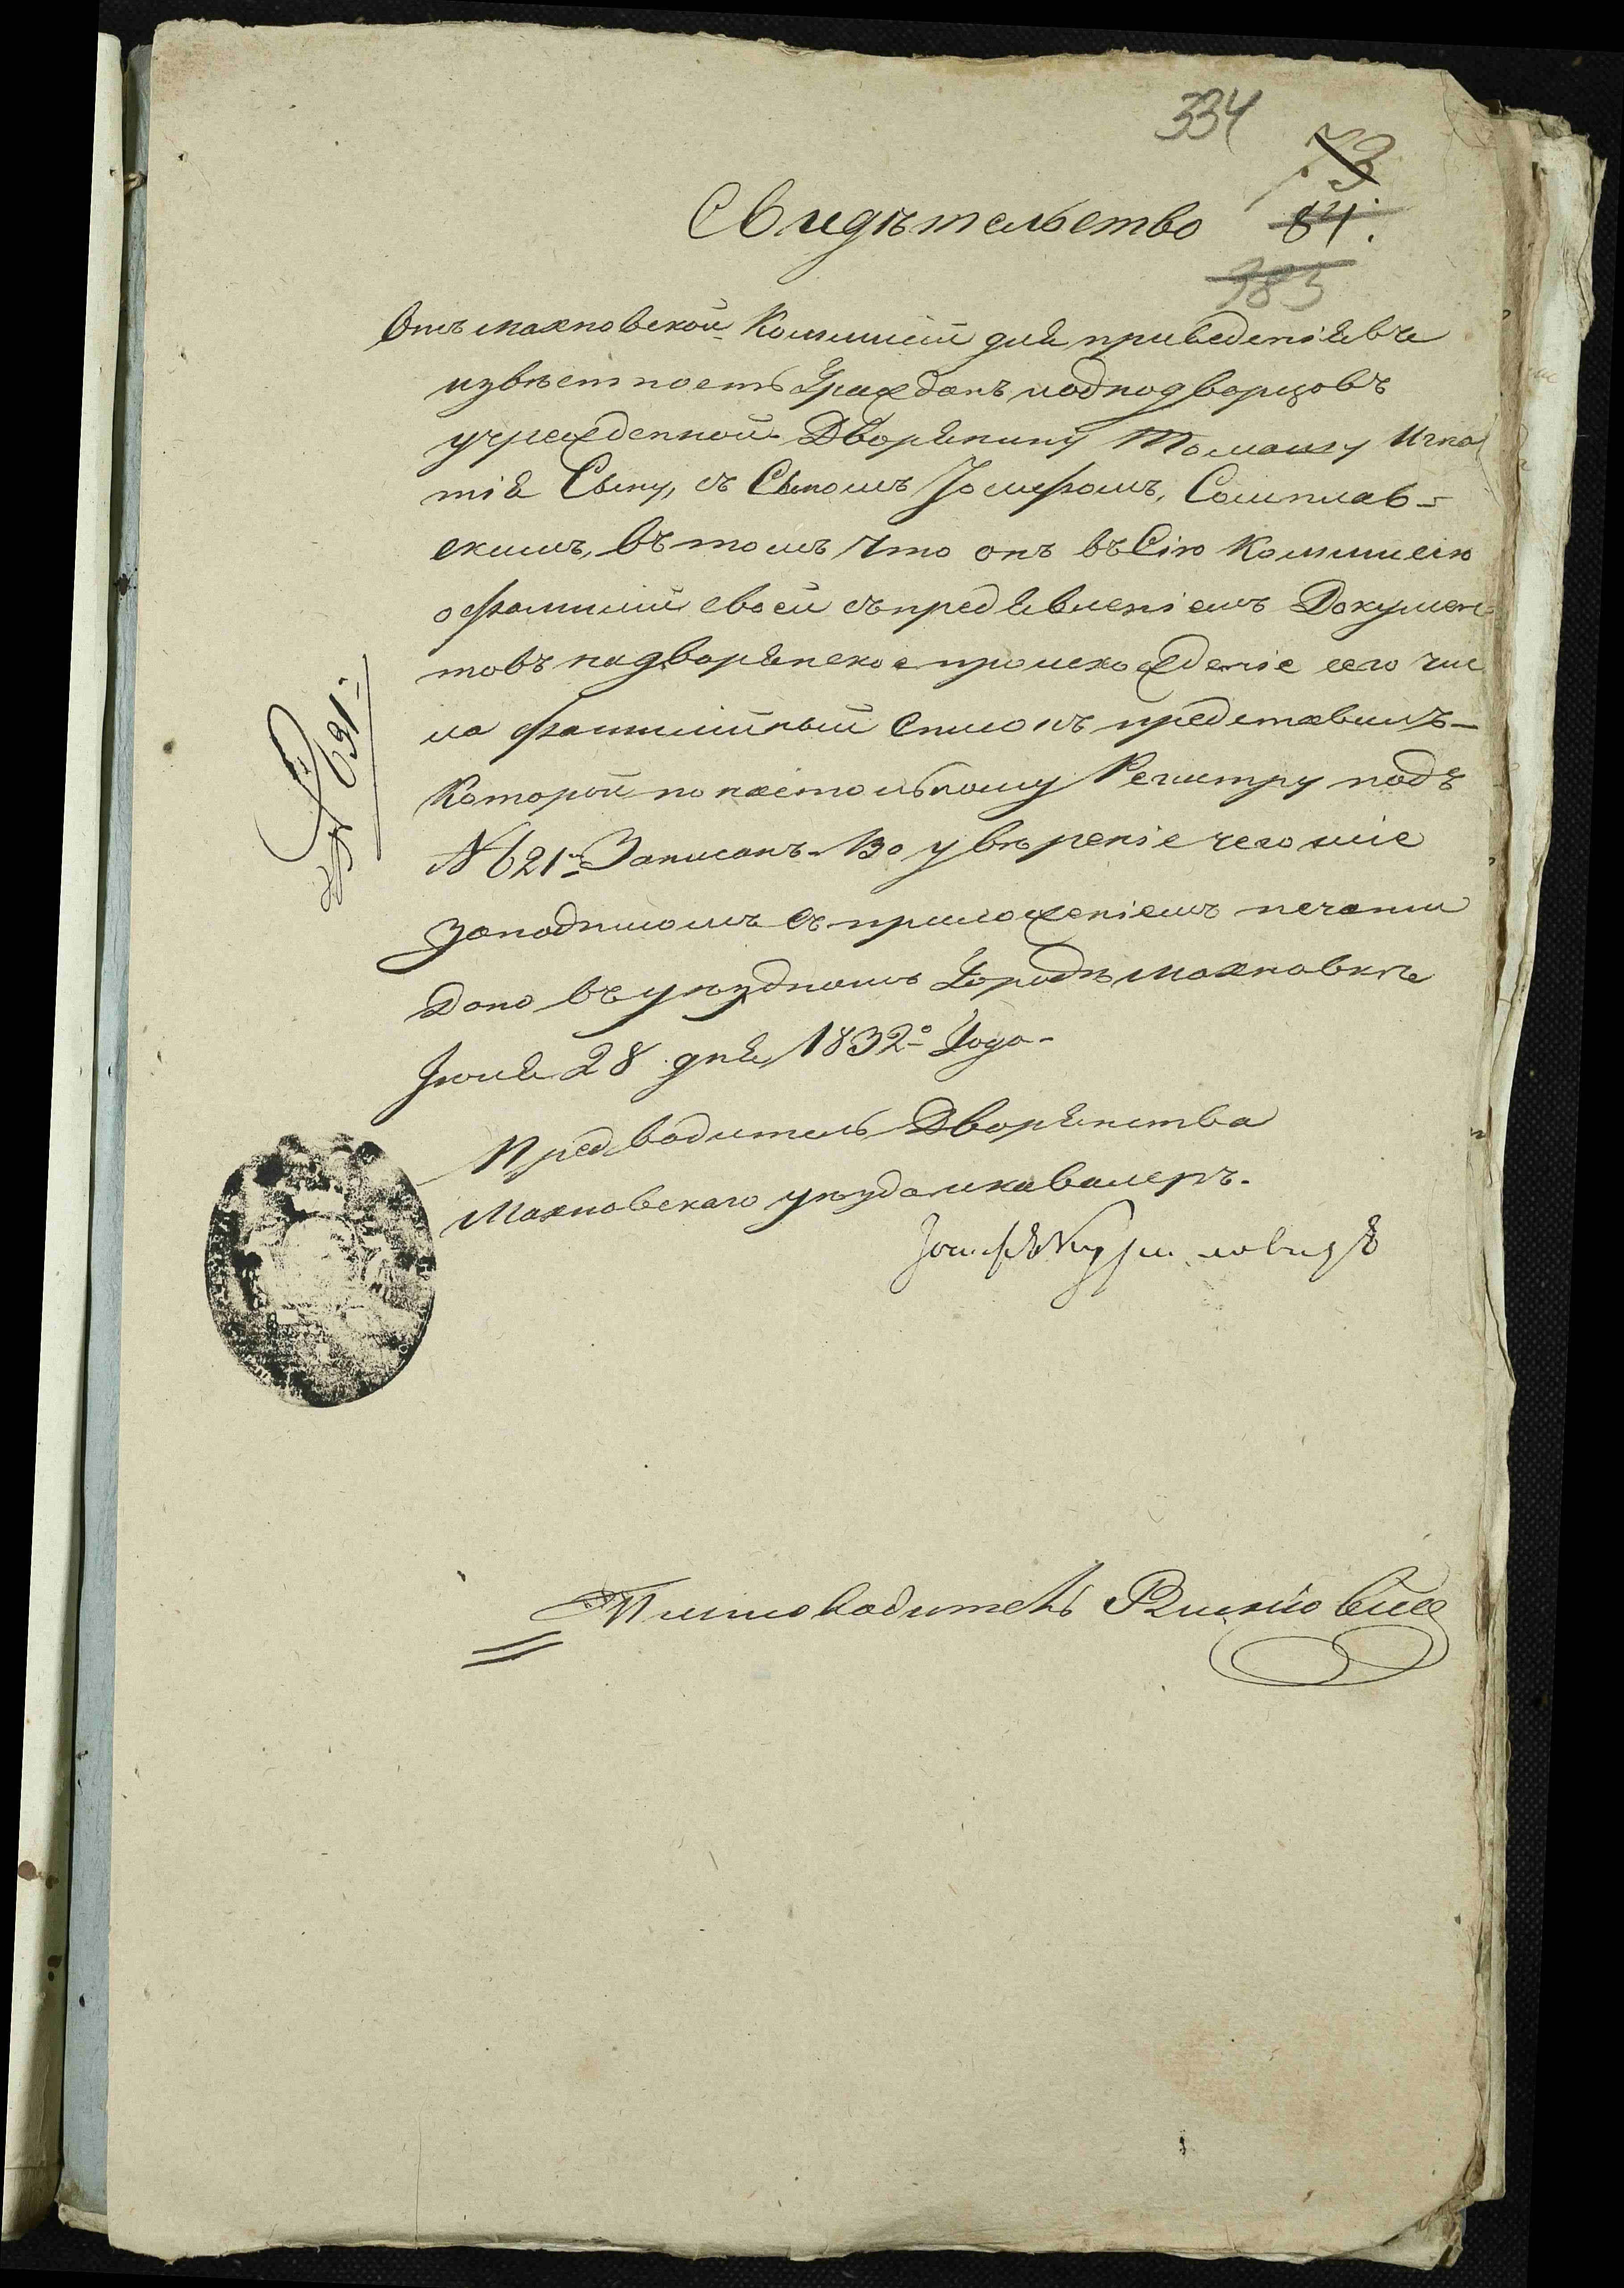 334
73
84.
Свидѣтельство
385
Отъ Махновской Коммисіи для приведенія въ
извѣстность Гражданъ и однодворцовъ
учрежденной Дворянину Томашу Игна
тія Сыну, съ Сыномъ Іосифомъ, Сомплав-
скимъ, въ томъ что онъ въ Сію Коммисію
о фамиліи своей съ предъявленіемъ Докумен
товъ на дворянское происхожденіе сего чис
ла фамилійный Списокъ представилъ-
Которой по настольному Регистру подъ
№ 621м Записанъ. Во увѣреніе чего сіе
за подписомъ съ приложеніемъ печати
Дано въ уѣздномъ Городѣ Махновкѣ
Іюля 28 дня 1832го Года-
Предводитель Дворянства
Махновскаго уѣзда и кавалеръ.
Іосифъ
Письмоводитель
№ 691